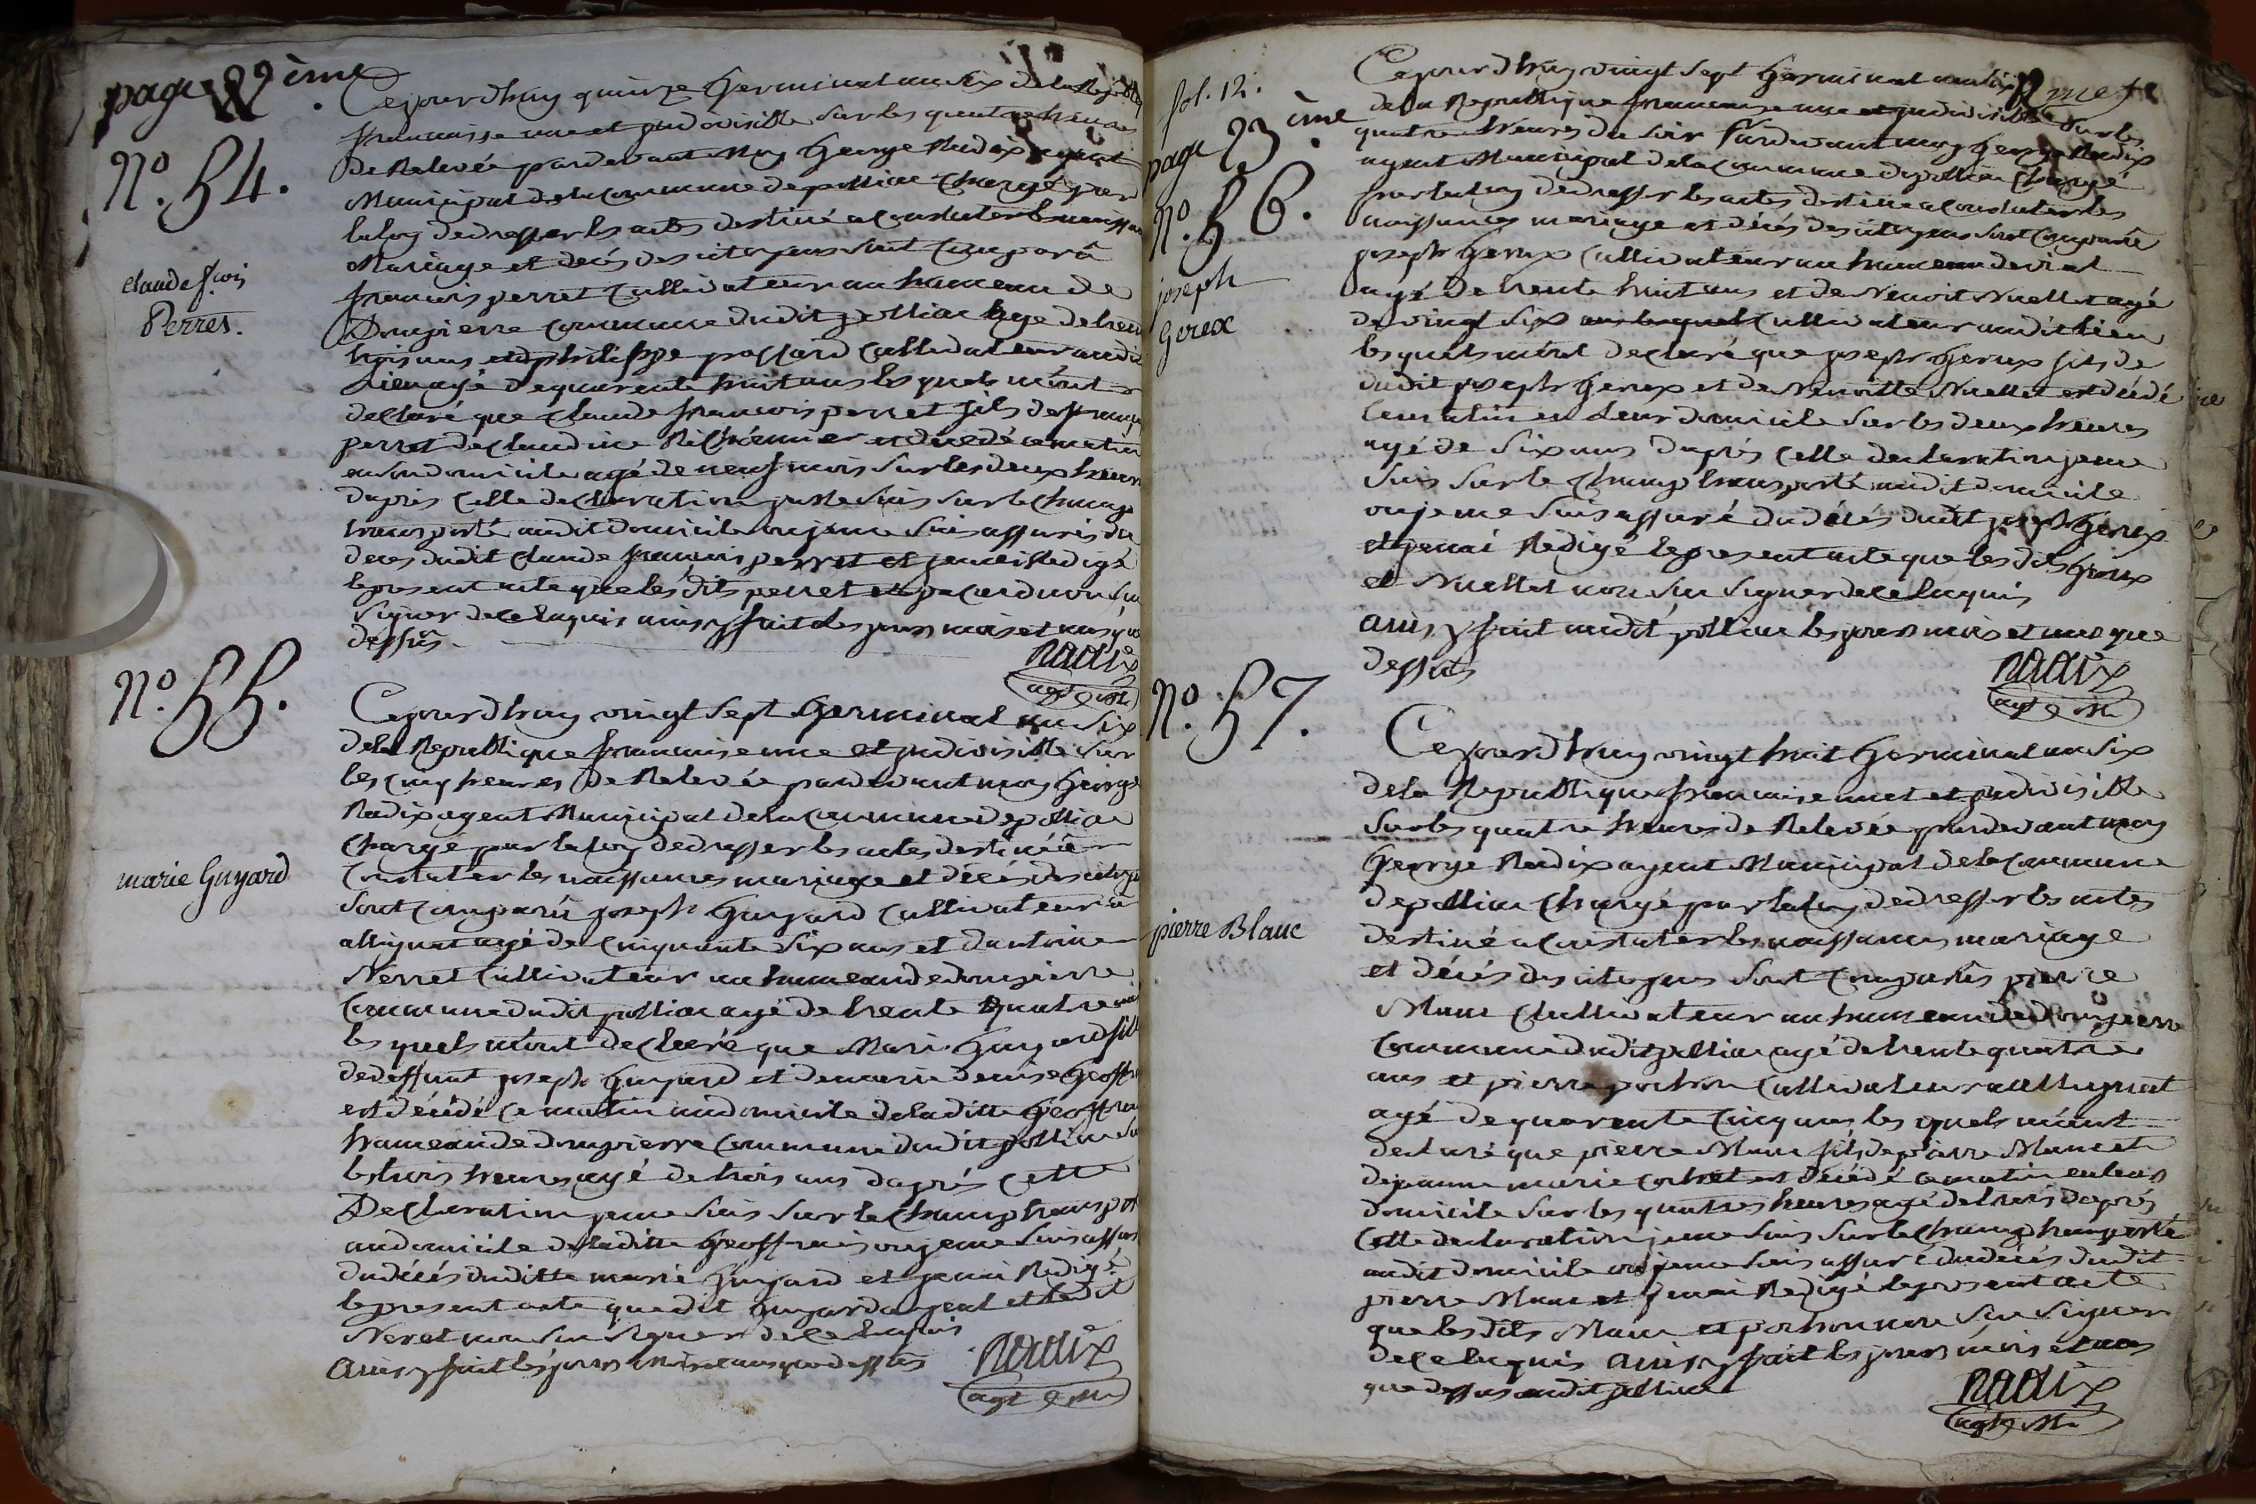 page 22 ème
Nº. 54.
claude f.cois
Perret.
Cejourdhuy quinze Germinal an Six de la Republique
francaisse une et jndivisible sur les quatre heures
de Relevée pardevant Moy George Radix agent
Municipal de la Commune de polliac Chargé par
la loy dedresser les actes destiné a Constater les naissan
Mariage et decés des citoyens sont Comparû
francois perret Cultivateur au hameau de
Dompierre Commune dudit polliac age de trente
trois ans et philippe possard Cultivateur audit
Lieu agé de quarente huit ans les quels m'ont
declaré que Claude francois perret fils de francois
perret de Claudine et decedé ce matin
en son domicile agé de neuf mois sur les deux heures
dapres Cette declaration je me suis sur le Champ
transporté audit domicile ou je me suis assuris du
deces dudit Claude francois perret et jenai Redigé
le present acte que les dits perret et possard non su
signer de ce Enquis ainsy fait les jours mois et ans que
dessus.
Radix
agt m.
Nº. 55.
marie Guyard
Cejourdhuy vingt sept Germinal an Six
de la Republique francaise une et jndivisible sur
les Cinq heures de Relevée pardevant moy George
Radix agent Municipal de la Commune de polliac
Chargé par la loy dedresser les actes destiné a
Constater les naissances mariage et décés des citoyens
sont Comparû joseph Guyard Cultivateur a
attignat agé de Cinquante six ans et dantoine
Nerret Cultivateur au hameau de dompierre
Commune dudit polliac agé de trente quatre ans
les quels m'ont declaré que Marie Guyard fille
de deffunt joseph Guyard et de marie denise Geoffrai
est décédé ce matin au domicile de la ditte Geoffrai
hameau de dompierre Commune dudit polliac sur
les trois heures agé de trois ans daprés Cette
Declaration je me suis sur le Champ transporté
au domicile de la ditte Geoffrai ou je me suis assuré
du décés duditte marie Guyard et jenai Redigé
le present acte que dit Guyard et ledit
Neret non su signer de ce Enquis
Ainsy fait les jours mois et ans que dessus
Radix
agt m.
fol. 12.
page 23 ème
Nº. 56.
joseph
Gerex
Cejourdhuy vingt sept Germinal an six
de la Republique francaise une et jndivisible sur les
quatre heures du soir Pardevant moy George Radix
agent Municipal de la Commune de polliac Chargé
par la loy dedresser les actes destiné a Constater les
naissances mariage et décés des citoyens sont Comparû
joseph Gerux Cultivateur au hameau de vial
agé de trente huit ans et de Benoit Nuellet agé
de vingt six Cultivateur audit lieu
les quels m'ont declaré que joseph Gerux fils de
dudit joseph Gerux et de Benoitte Nuellet est décédé
Cematin en leur domicile sur les deux heures
agé de six ans daprés Cette declaration je me
suis sur le Champ transporté audit domicile
ou je me suis assuré du décés dudit joseph Gerux
et jenai Redigé le present acte que les dits Gerux
et Nuellet non su signer de ce Enquis
ainsy fait audit polliac les jours mois et ans que
dessus
Radix
agt m.
Nº. 57.
pierre Blanc
Cejourdhuy vingt huit Germinal an six
de la Republique francaise une et jndivisible
sur les quatre heures de Relevée pardevant moy
George Radix agent Municipal de la Commune
de polliac Chargé par la loy dedresser les actes
destiné a Constater les naissances mariage
et décés des citoyens sont Comparûs pierre
Blanc Cultivateur au hameau de dompierre
Commune dudit polliac agé de trente quatre
ans et pierre pochon Cultivateur a attignat
agé de quarente Cinq ans les quels m'ont
declaré que pierre Blanc fils de pierre Blanc et
de jeanne marie Cochet est décédé ce matin en leur
domicile sur les quatre heures agé de trois daprés
Cette declaration je me suis sur le Champ transporté
audit domicile ou je me suis assuré du décés dudit
pierre Blanc et jenai Redigé le present acte
que les dits Blanc et pochon non su signer
de ce Enquis Ainsy fait les jours mois et ans
que dessus audit polliac
Radix
agt m.